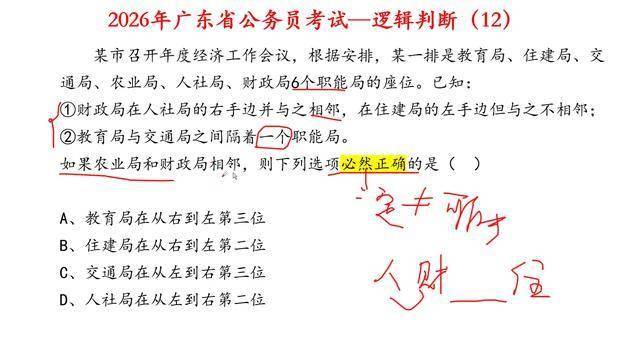 2026年广东省公务员考试—逻辑判断（12）
某市召开年度经济工作会议，根据安排，某一排是教育局、住建局、交
通局、农业局、人社局、财政局6个职能局的座位。已知：
①财政局在人社局的右手边并与之相邻，在住建局的左手边但与之不相邻；
②教育局与交通局之间隔着一个职能局。
如果农业局和财政局相邻，则下列选项必然正确的是（　）
A、教育局在从右到左第三位
B、住建局在从右到左第二位
C、交通局在从左到右第三位
D、人社局在从左到右第二位
人财 住